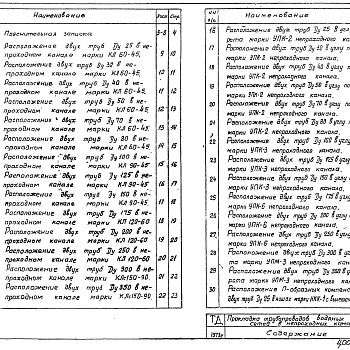 Наименование
Расп. Стр.
Пояснительная записка 5-8 4
Расположение двух труб Ду 25 в не-
проходном канале марки КЛ 60-45. 9 10
Расположение двух труб Ду 30 в не-
проходном канале марки КЛ 60-45. 10 11
Расположение двух труб Ду 40 в не-
проходном канале марки КЛ 60-45. 11 12
Расположение двух труб Ду 50 в не-
проходном канале марки КЛ 60-45. 12 13
Расположение двух труб Ду 70 в не-
проходном канале марки КЛ 60-45. 13 14
Расположение двух труб Ду 80 в не-
проходном канале марки КЛ 60-45. 14 15
Расположение двух труб Ду 100 в не-
проходном канале марки КЛ 90-45 15 16
Расположение двух труб Ду 125 в не-
проходном канале марки КЛ 90-45. 16 17
Расположение двух труб Ду 150 в не-
проходном канале марки КЛ 90-45. 17 18
Расположение двух труб Ду 175 в не-
проходном канале марки КЛ 120-60 18 19
Расположение двух труб Ду 200 в не-
проходном канале марки КЛ 120-60 19 20
Расположение двух труб Ду 250 в не-
проходном канале марки КЛ 120-60 20 21
Расположение двух труб Ду 300 в не-
проходном канале марки КЛс 150-90. 21 22
Расположение двух труб Ду 350 в не-
проходном канале марки КЛс 150-90. 22 23
Наименование
16 Расположение двух труб Ду 25 в
марки УПК-2 непроходного канала.
17 Расположение двух труб
марки УПК-2 непроходного канала.
18 Расположение двух труб
марки УПК-2 непроходного канала.
19 Расположение двух труб
марки УПК-2 непроходного канала.
20 Расположение двух труб Ду 70 в
марки УПК-2 непроходного канала.
21 Расположение двух труб Ду 80 в
марки УПК-2 непроходного канала.
22 Расположение двух труб Ду 100 в углу
марки УПК-3 непроходного канала.
23 Расположение двух труб Ду 125 в углу
марки УПК-3 непроходного канала.
24 Расположение двух труб Ду 150 в углу
марки УПК-3 непроходного канала.
25 Расположение двух труб
марки УПК-5 непроходного канала.
26 Расположение двух труб Ду 200 в углу
марки УПК-5 непроходного канала.
27 Расположение двух труб Ду 250 в углу
марки непроходного канала.
28 Расположение двух труб Ду 300 в
та марки непроходного канала.
29 Расположение двух труб
та марки непроходного канала.
30 Расположение П-образных компенса
двух труб Ду 25 в нише марки
ТД
1973г
Прокладка трубопроводов водяных
сетей в непроходных кана
Содержание